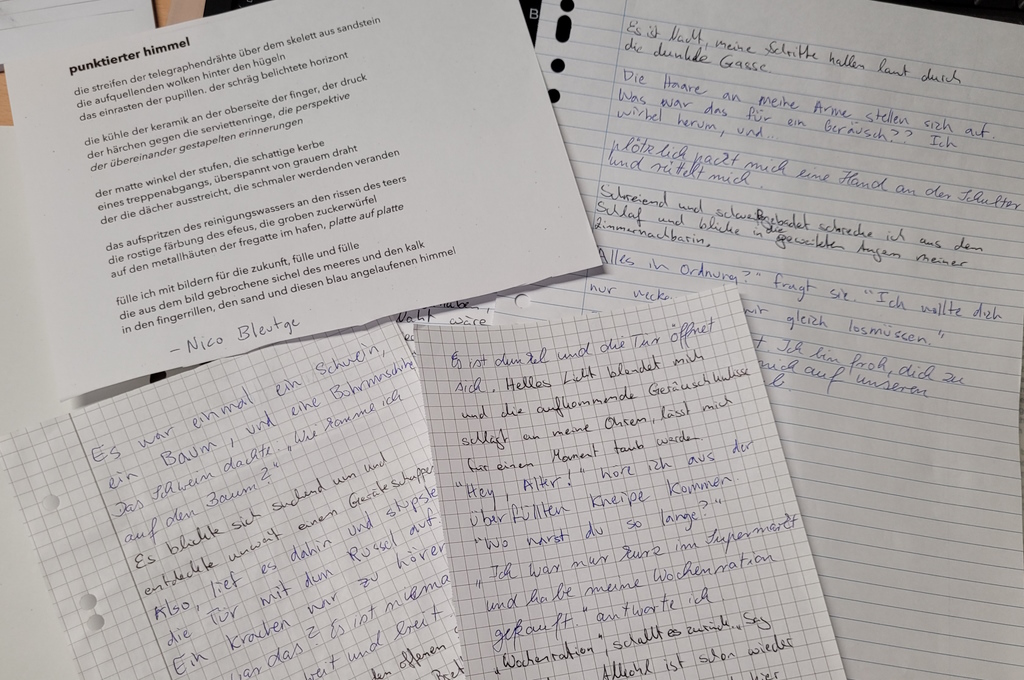 punktierter himmel
die streifen der telegraphendrähte über dem skelett aus sandstein
die aufquellenden wolken hinter den hügeln
das einrasten der pupillen. der schräg belichtete horizont
die kühle der keramik an der oberseite der finger, der druck
der härchen gegen die serviettenringe, die perspektive
der übereinander gestapelten erinnerungen
der matte winkel der stufen, die schattige kerbe
eines treppenabgangs, überspannt von grauem draht
der die dächer ausstreicht, die schmaler werdenden veranden
das aufspritzen des reinigungswassers an den rissen des teers
die rostige färbung des efeus, die groben zuckerwürfel
auf den metallhäuten der fregatte im hafen, platte auf platte
fülle ich mit bildern für die zukunft, fülle und fülle
die aus dem bild gebrochene sichel des meeres und den kalk
in den fingerrillen, den sand und diesen blau angelaufenen himmel
– Nico Bleutge
B
Es ist Nacht, meine Schritte hallen laut durch
die dunkle Gasse.
Die Haare an meine Arme stellen sich auf.
Was war das für ein Geräusch?? Ich
wirbel herum, und...
plötzlich packt mich eine Hand an der Schulter
und rüttelt mich.
Schreiend und schweißgebadet schrecke ich aus dem
Schlaf und blicke in die geweiteten Augen meiner
Zimmernachbarin.
Alles in Ordnung?" fragt sie. "Ich wollte dich
nur
wir gleich losmüssen."
Ich bin froh, dich zu
mich auf unseren
wäre
Es war einmal ein Schwein,
ein Baum, und eine Bohrmaschine
Das Schwein dachte: „Wie komme ich
auf den Baum?"
Es blickte sich suchend um und
entdeckte unweit einen Geräteschuppen
Also, lief es dahin und stupste
die Tür mit dem Rüssel auf.
Ein Krachen war zu hören
war das? Es ist niema
weit und breit
den offenen
Es ist dunkel und die Tür öffnet
sich. Helles Licht blendet mich
und die aufkommende Geräuschkulisse
schlägt an meine Ohren, lässt mich
für einen Moment taub werden.
"Hey, Alter!" höre ich aus der
überfüllten Kneipe kommen
"Wo warst du so lange?"
„Ich war nur kurz im Supermarkt
und habe meine Wochenration
gekauft." antworte ich
„Wochenration" schallt es zurück. „Sag
Alkohl ist schon wieder
hier